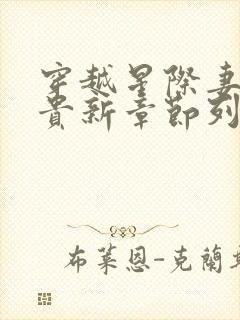 穿越星際妻
貴新章節列
布萊恩-克蘭